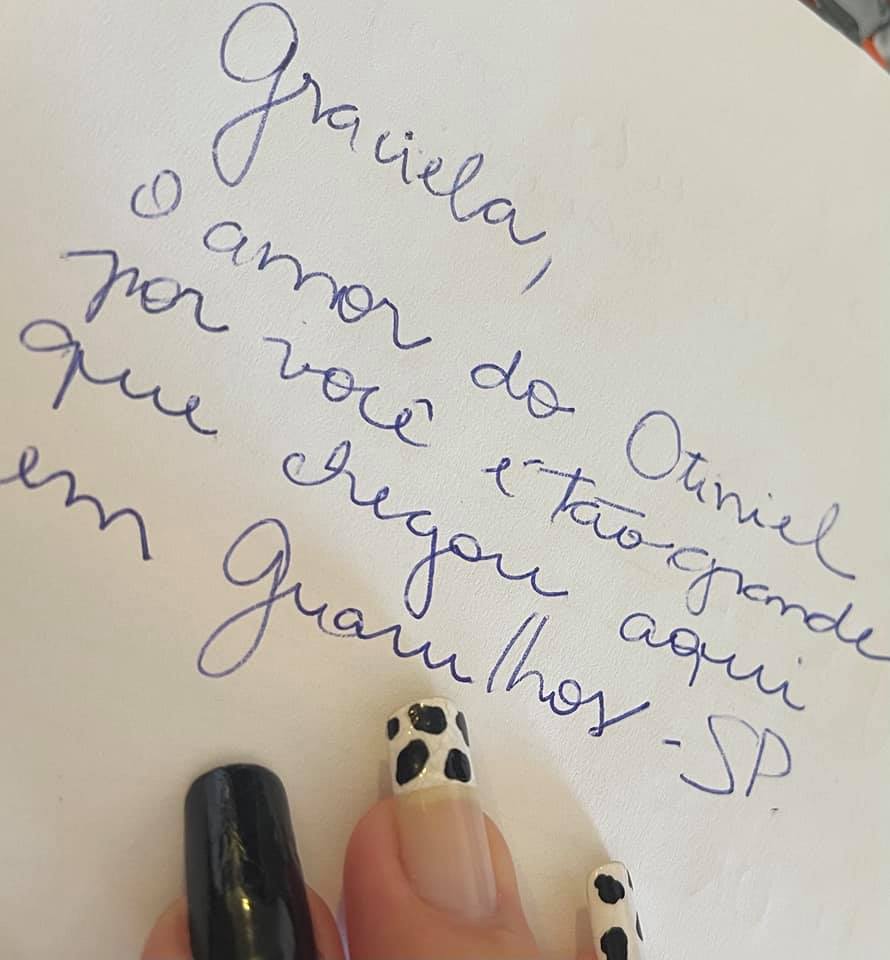 Graciela,
O amor do Otiniel
por você é tão grande
que chegou aqui
em Guarulhos - SP.